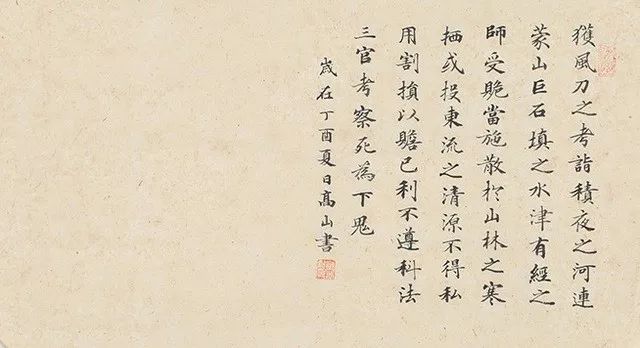 獲風刀之考詣積夜之河連
蒙山巨石填之水津有經之
師受賄當施散於山林之寒
栖或投東流之清源不得私
用割損以贍己利不遵科法
三官考察死為下鬼
歲在丁酉夏日高山書